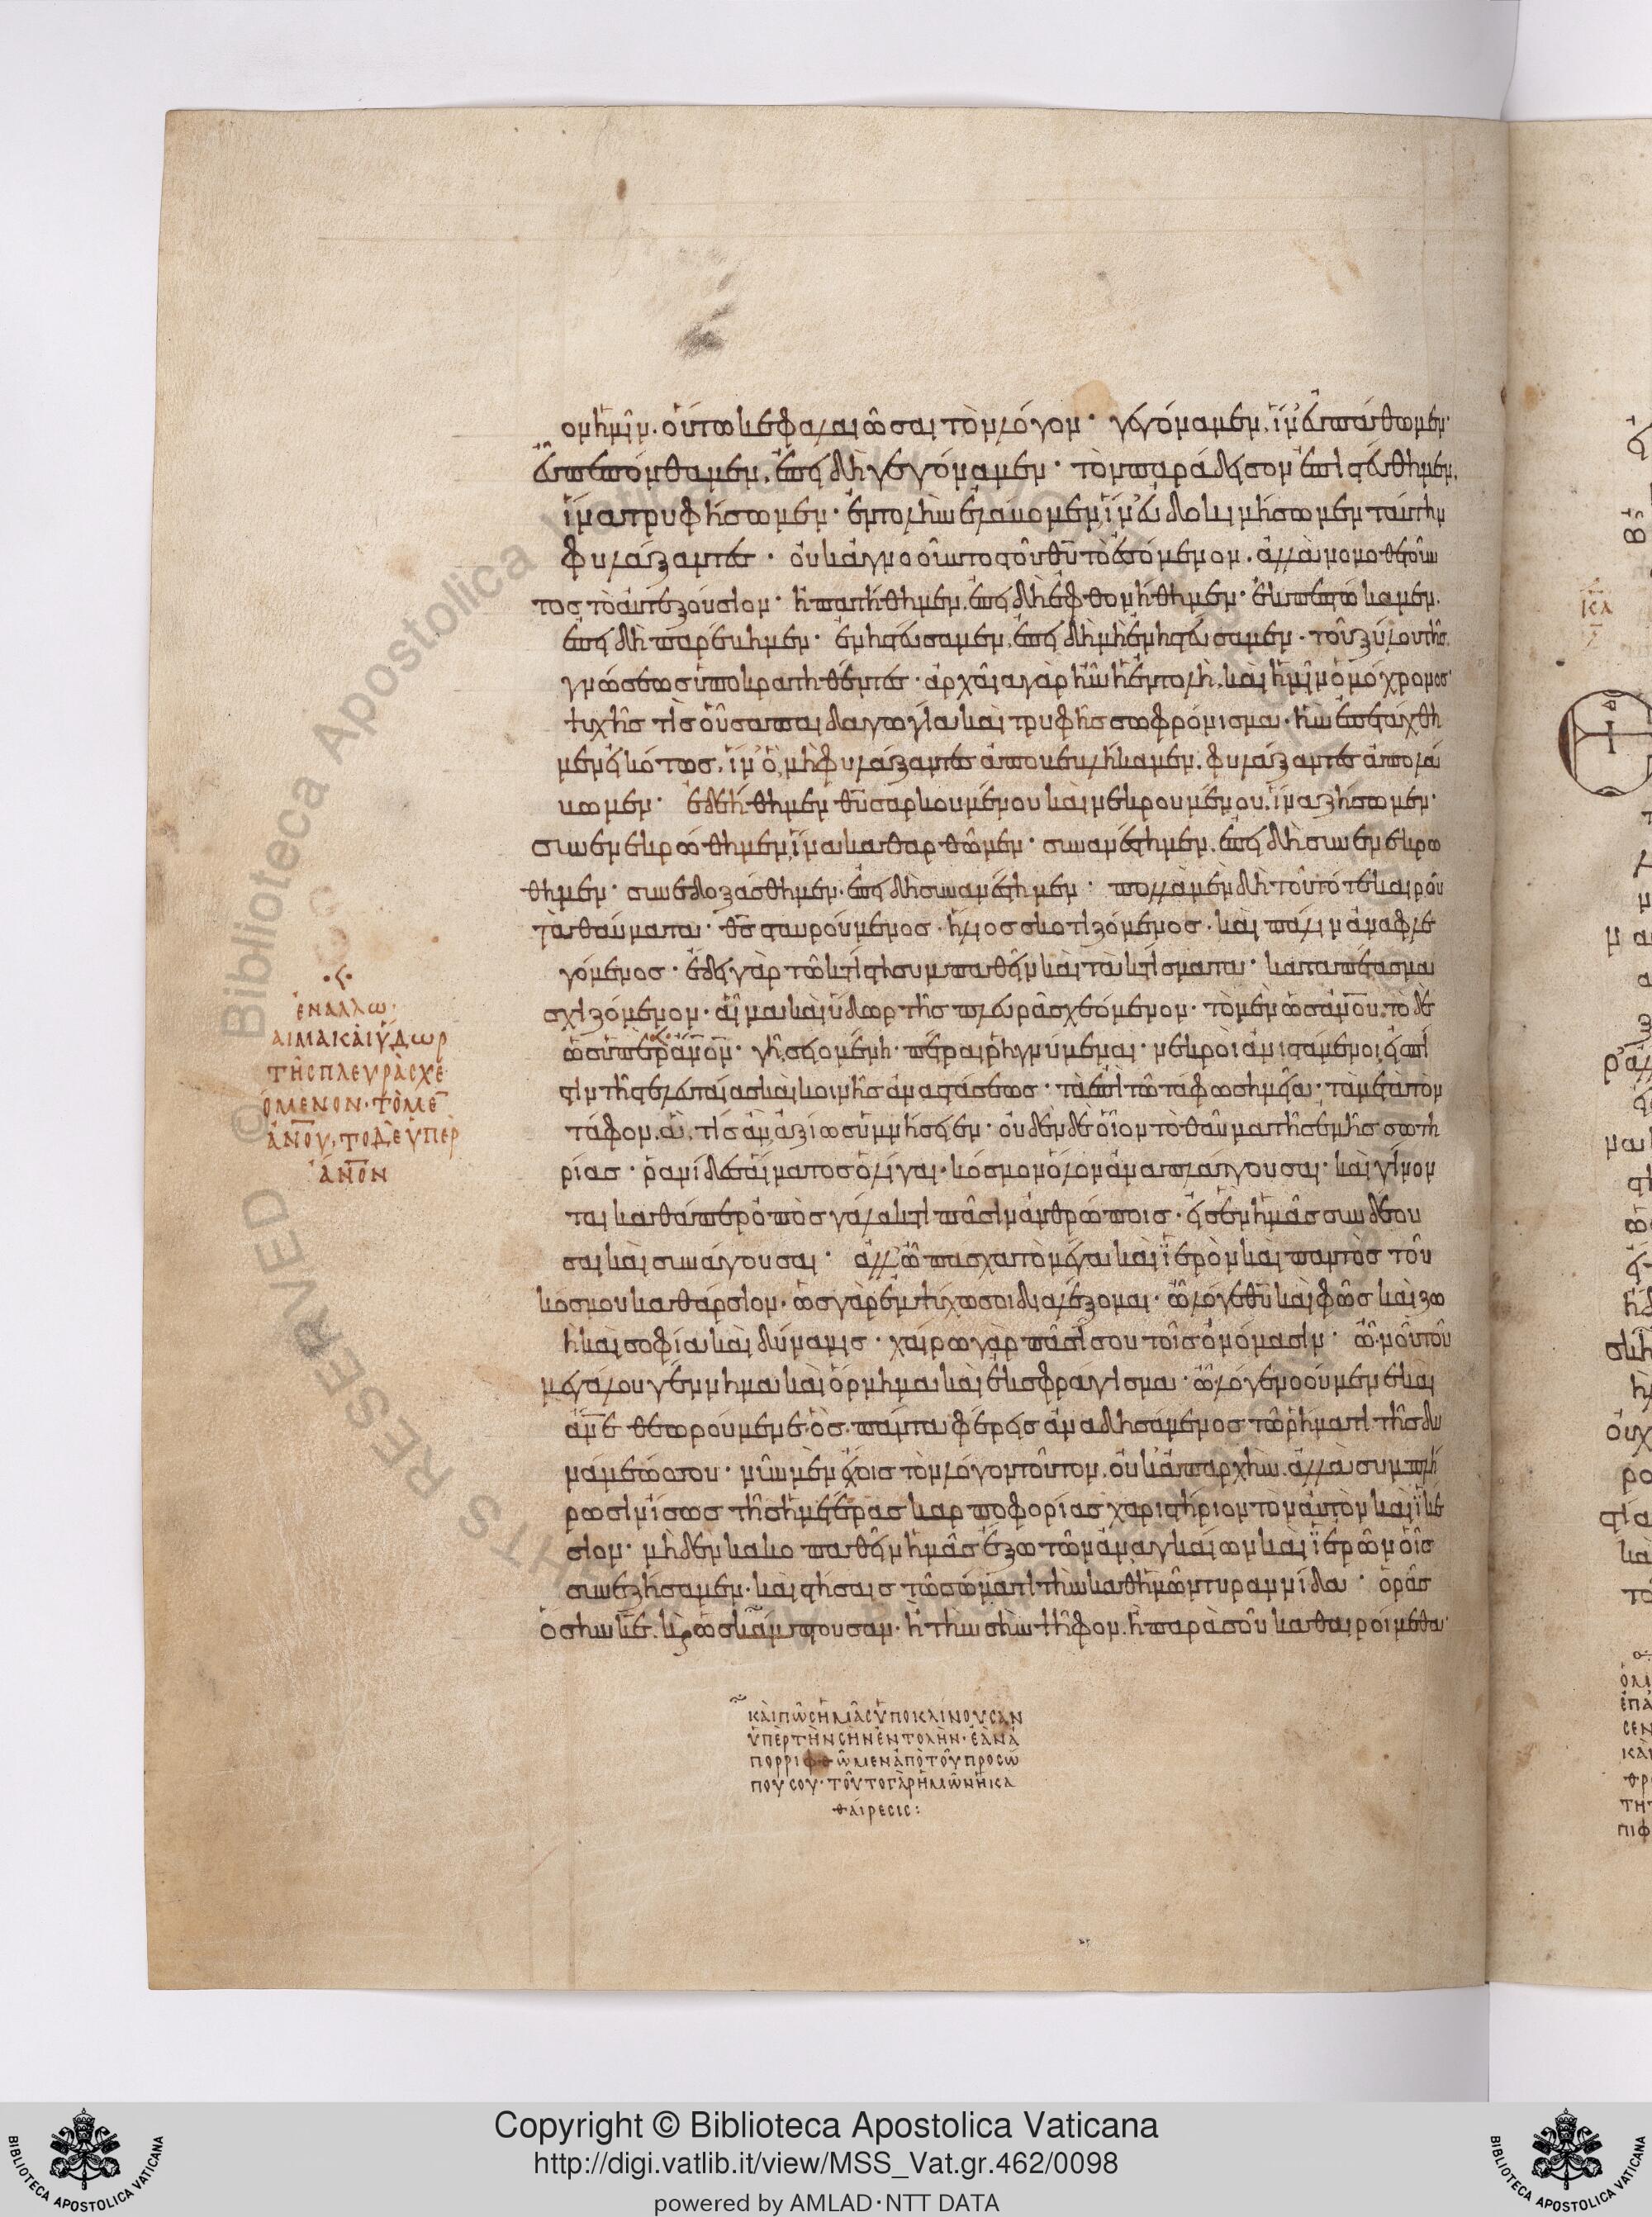 ον ἡμῖν. οὕτω κεφαλαιῶσαι τὸν λόγον· γεγόναμεν, ἵν' εὐπάθωμεν·
εὐπεπόνθαμεν, ἐπειδὴ γεγόναμεν· τὸν παράδεισον ἐπιστεύθημεν,
ἵνα τρυφήσωμεν· ἐντολὴν ἐλάβομεν, ἵν' εὐδοκιμήσωμεν ταύτην
φυλάξαντες· οὐκ ἀγνοοῦντος τοῦ θ̅υ̅ τὸ ἐσόμενον, ἀλλὰ νομοθετοῦν
τος τὸ αὐτεξούσιον· ἠπατήθημεν, ἐπειδὴ ἐφθονήθημεν· ἐκπεπτώκαμεν,
ἐπειδὴ παρέβημεν· ἐνηστεύσαμεν, ἐπειδὴ μὴ ἐνηστεύσαμεν, τοῦ ξύλου τῆς
γνώσεως ὑποκρατηθέντες· ἀρχαία γὰρ ἦν ἡ ἐντολὴ, καὶ ἡμῖν ὁμόχρονος·
ψυχῆς τὶς οὖσα παιδαγωγία καὶ τρυφῆς σωφρόνισμα· ἣν ἐπετάχθη
μεν εἰκότως, ἵν' ὃ μὴ φυλάξαντες ἀποβεβλήκαμεν, φυλάξαντες ἀπολά
βωμεν· ἐδεήθημεν θ̅υ̅ σαρκουμένου καὶ νεκρουμένου, ἵνα ζήσωμεν·
συνενεκρώθημεν, ἵνα καθαρθῶμεν· συνανέστημεν, ἐπειδὴ συνενεκρώ
θημεν· συνεδοξάσθημεν, ἐπειδὴ συνανέστημεν· πολλὰ μὲν δὴ τοῦ τότε καιροῦ
τὰ θαύματα· θ̅ς̅ σταυρούμενος· ἥλιος σκοτιζόμενος, καὶ πάλιν ἀναφλε
γόμενος· ἔδει γὰρ τῶ κτίστη συμπαθεῖν καὶ τὰ κτίσματα· καταπέτασμα
σχιζόμενον· αἷμα καὶ ὕδωρ τῆς πλευρᾶς χεόμενον· τὸ μὲν ὡς ἀ̅ν̅ο̅υ̅, τὸ δὲ
ὡς ὑπὲρ ἄ̅ν̅ο̅ν̅· γῆ σειομένη· πέτραι ῥηγνύμεναι· νεκροὶ ἀνιστάμενοι εἰς πί
στιν τῆς τελευταίας καὶ κοινῆς ἀναστάσεως· τὰ ἐπὶ τῶ τάφω σημεῖα· τὰ μετὰ τὸν
τάφον. ἃ τίς ἂν ἀξίως ὑμνήσειεν· οὐδὲν δὲ οἷον τὸ θαῦμα τῆς ἐμῆς σωτη
ρίας· ῥανίδες αἵματος ὀλίγαι, κόσμον ὅλον ἀναπλάττουσαι· καὶ γίνον
ται καθάπερ ὀπὸς γάλακτι πᾶσιν ἀνθρώποις· εἰς ἓν ἡμᾶς συνδέου
σαι καὶ συνάγουσαι· ἀλλ' ὦ πάσχα τὸ μέγα καὶ ἱερὸν καὶ παντὸς τοῦ
κόσμου καθάρσιον· ὡς γὰρ ἐμψύχω σοι διαλέξομαι· ὦ λόγε θ̅υ̅ καὶ φῶς καὶ ζω
ὴ καὶ σοφία καὶ δύναμις· χαίρω γὰρ πᾶσί σου τοῖς ὀνόμασιν· ὦ νοῦ τοῦ
μεγάλου γέννημα καὶ ὅρμημα καὶ ἐκσφράγισμα· ὦ λόγε νοούμενε καὶ
ἄ̅ν̅ε̅ θεωρούμενε, ὃς πάντα φέρεις ἀναδησάμενος τῶ ῥήματι τῆς δυ
νάμεώς σου· νῦν μὲν ἔχοις τὸν λόγον τοῦτον, οὐκ ἀπαρχὴν, ἀλλὰ συμπλή
ρωσιν ἴσως τῆς ἡμετέρας καρποφορίας χαριστήριον τὸν αὐτὸν καὶ ἱκέ
σιον· μηδὲν κακοπαθεῖν ἡμᾶς ἔξω τῶν ἀναγκαίων καὶ ἱερῶν οἷς
συνεζήσαμεν· καὶ στήσαις τῶ σώματι τὴν καθ' ἡμῶν τυραννίδα· ὁρᾶς
ὅσην κ̅ε̅. κ(αὶ) ὡς κάμπτουσαν· ἢ τὴν σὴν ψῆφον. ἢ παρὰ σοῦ καθαιροίμεθα·
ἐν ἄλλω·
αἷμα καὶ ὕδωρ
τῆς πλευρᾶς χε
όμενον· τὸ μὲ̅
ἀ̅ν̅ο̅υ̅, τὸ δὲ ὑπὲρ
ἄ̅ν̅ο̅ν̅
καὶ πῶς ἡμᾶς ὑποκλίνουσαν
ὑπὲρ τὴν σὴν ἐντολήν· ἐὰν ἀ
πορριφθῶμεν ἀπὸ τοῦ προσώ
που σου· τοῦτο γὰρ ἡμῶν ἡ κα
θαίρεσις:
© Biblioteca Apostolica Vaticana
Copyright © Biblioteca Apostolica Vaticana
http://digi.vatlib.it/view/MSS_Vat.gr.462/0098
powered by AMLAD·NTT DATA
BIBLIOTECA APOSTOLICA VATICANA
BIBLIOTECA APOSTOLICA VATICANA